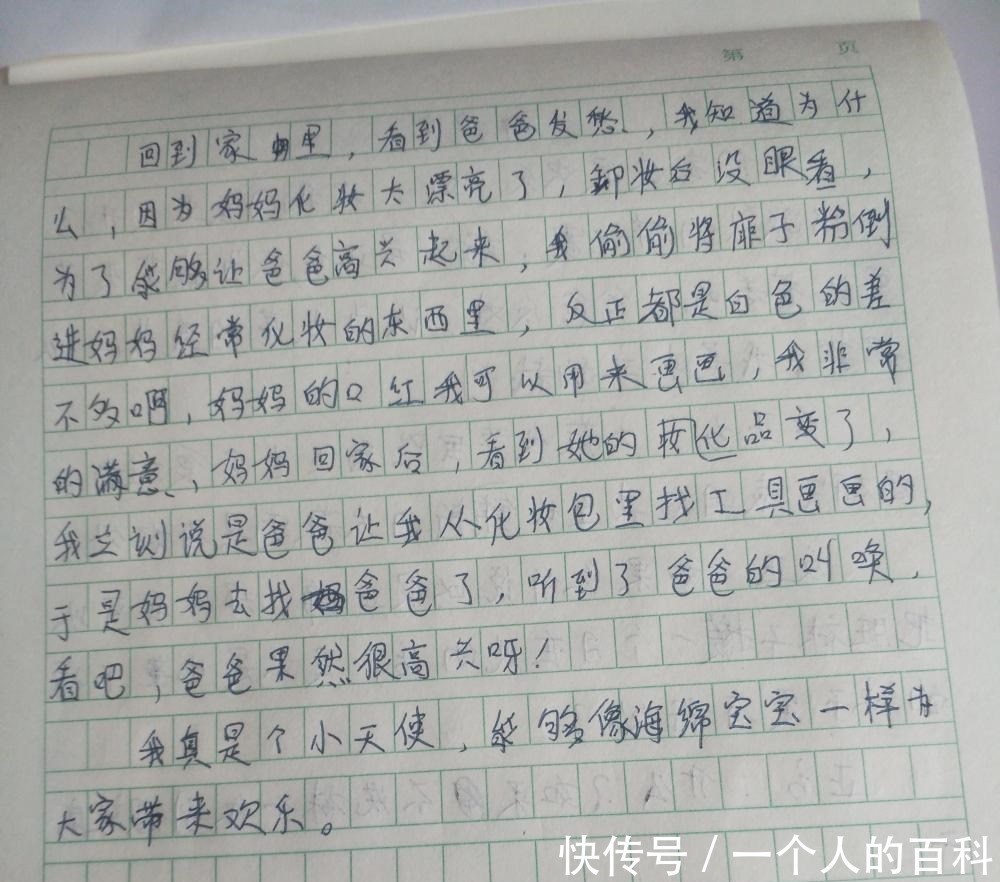 第 页
回到家里，看到爸爸发愁，我知道为什
么，因为妈妈化妆太漂亮了，卸妆后没眼看，
为了能够让爸爸高兴起来，我偷偷将痱子粉倒
进妈妈经常化妆的东西里，反正都是白色的差
不多啊，妈妈的口红我可以用来画画，我非常
的满意，妈妈回家后，看到她的妆化品变了，
我立刻说是爸爸让我从化妆包里找工具画画的，
于是妈妈去找爸爸了，听到了爸爸的叫唤，
看吧，爸爸果然很高兴呀！
我真是个小天使，能够像海绵宝宝一样为
大家带来欢乐。
快传号/一个人的百科